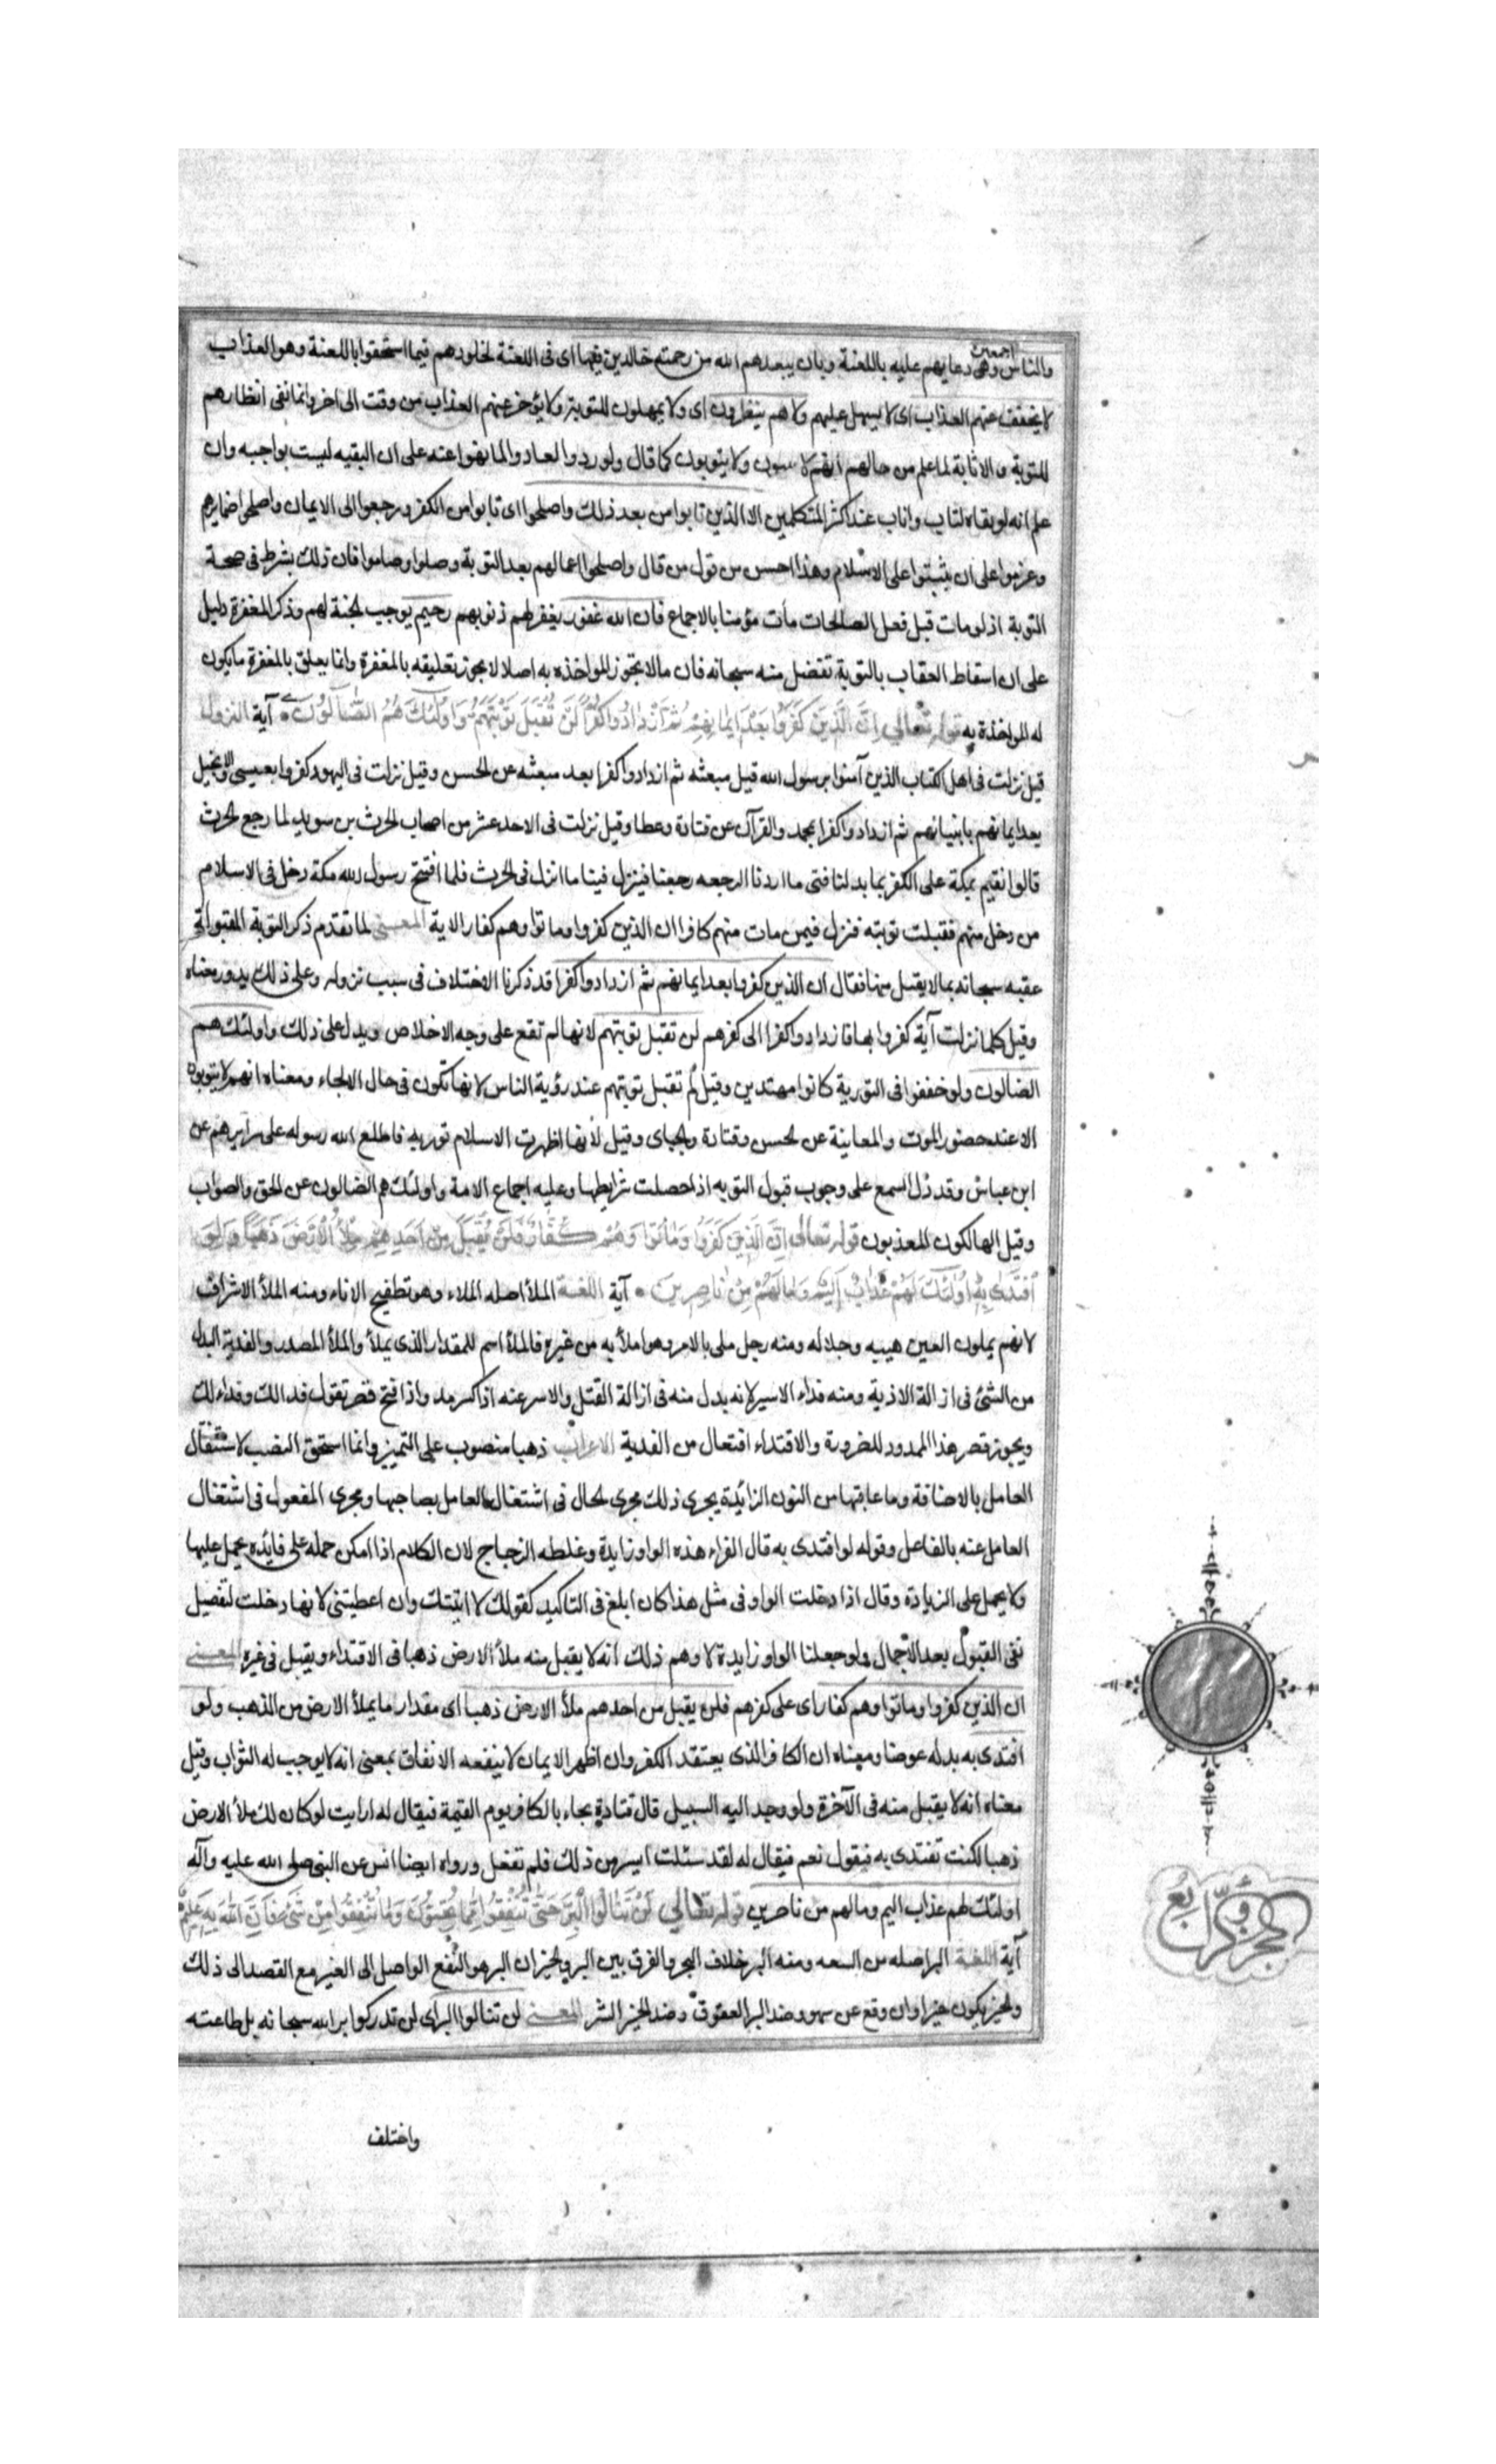 والناس اجمعين وهى دعايهم عليه باللعنة وبان يبعدهم الله من رحمته خالدين فيها اى فى اللعنة لخلودهم فيما استحقوا باللعنة وهو العذاب
لا يخفف عنهم العذاب اى لا يسهل عليهم ولا هم ينظرون اى ولا يمهلون للتوبة ولا يؤخر عنهم العذاب من وقت الى اخر وانما نفى انظارهم
للتوبة والانابة لما علم من حالهم انهم لا ولا يتوبون كما قال ولو ردوا لعادوا لما نهوا عنه على ان البقيه ليست بواجبه وان
علم انه لو بقاه لتاب واناب عند اكثر المتكلمين الا الذين تابوا من بعد ذلك واصلحوا اى تابوا من الكفر ورجعوا الى الايمان واصلحوا ضمايرهم
وعزموا على ان يثبتوا على الاسلام وهذا احسن من قول من قال واصلحوا اعمالهم بعد التوبة وصلوا وصاموا فان ذلك بشرط فى صحة
التوبة اذ لو مات قبل فعل الصالحات مات مؤمنا بالاجماع فان الله غفور يغفر لهم ذنوبهم رحيم يوجب الجنة لهم وذكر المغفرة دليل
على ان اسقاط العقاب بالتوبة تفضل منه سبحانه فان مالا يجوز المواخذه به اصلا لا يجوز تعليقه بالمغفرة وانما يعلق بالمغفرة ما يكون
له المواخذة به قوله تعالى اِنَّ الَّذينَ كَفَرُوا بَعْدَ ايمانِهِمْ ثُمَّ ازْدادُوا كُفْراً لَنْ تُقْبَلَ تَوْبَتُهُمْ وَاُولئِكَ هُمُ الضّالُّونَ آية النزول
قيل نزلت فى اهل الكتاب الذين آمنوا برسول الله قبل مبعثه ثم ازدادوا كفرا بعد مبعثه عن الحسن وقيل نزلت فى اليهود كفروا بعيسى والانجيل
بعد ايمانهم بانبيائهم ثم ازدادوا كفرا بمحمد والقرآن عن قتادة وعطا وقيل نزلت فى الاحد عشر من اصحاب الحرث بن سويد لما رجع الحرث
قالوا نقيم بمكة على الكفر بما بدلنا فمتى ما اردنا الرجعه رجعنا فينزل فينا ما انزل فى الحرث فلما افتتح رسول الله مكة دخل فى الاسلام
من دخل منهم فقبلت توبته فنزل فيمن مات منهم كافرا ان الذين كفروا وماتوا وهم كفار الاية المعنى لما تقدم ذكر التوبة المقبولة
عقبه سبحانه بما لا يقبل منها فقال ان الذين كفروا بعد ايمانهم ثم ازدادوا كفرا قد ذكرنا الاختلاف فى سبب نزوله وعلى ذلك يدور معناه
وقيل كلما نزلت آية كفروا بها فازدادوا كفرا الى كفرهم لن تقبل توبتهم لانها لم تقع على وجه الاخلاص ويدل على ذلك واولئك هم
الضالون ولو حققوا فى التوبة كانوا مهتدين وقيل لم تقبل توبتهم عند رؤية الناس لانها تكون فى حال الالجاء ومعناه انهم لا يتوبون
الا عند حضور الموت والمعاينة عن الحسن وقتادة والجباى وقيل لانها اظهرت الاسلام توريه فاطلع الله رسوله على سرايرهم عن
ابن عباس وقد دل السمع على وجوب قبول التوبه اذا حصلت شرايطها وعليه اجماع الامة واولئك هم الضالون عن الحق والصواب
وقيل الهالكون المعذبون قوله تعالى اِنَّ الَّذينَ كَفَرُوا وَماتُوا وَهُمْ كُفّارٌ فَلَنْ يُقْبَلَ مِنْ اَحَدِهِمْ مِلْأُ الْاَرْضِ ذَهَباً وَلَوِ
افْتَدى بِهِ اُولئِكَ لَهُمْ عَذابٌ اَليمٌ وَمالَهُمْ مِنْ ناصِرينَ آية اللغة الملأ اصله الملاء وهو تطفيح الاناء ومنه الملأ الاشراف
لانهم يملون العين هيبه وجلاله ومنه رجل ملى بالامر وهو املأ به من غيره فالملأ اسم للمقدار الذى يملأ والملأ المصدر والفدية البدل
من الشئ فى ازالة الاذية ومنه فداء الاسير لانه بدل منه فى ازالة القتل والاسر عنه اذا كسر مد واذا فتح قصر تقول فدا لك وفداء لك
ويجوز قصر هذا الممدود للضرورة والافتداء افتعال من الفدية الاعراب ذهبا منصوب على التميز وانما استحق النصب لاشتغال
العامل بالاضافة وما عاقبها من النون الزائدة يجرى ذلك مجرى الحال فى اشتغال العامل بصاحبها ومجرى المفعول فى اشتغال
العامل عنه بالفاعل وقوله لو افتدى به قال الفراء هذه الواو زايدة وغلطه الزجاج لان الكلام اذا امكن حمله على فايده يحمل عليها
ولا يحمل على الزيادة وقال اذا دخلت الواو فى مثل هذا كان ابلغ فى التاكيد كقولك لا اتيتك وان اعطيتنى لانها دخلت لتفصيل
نفى القبول بعد الاجمال ولو جعلنا الواو زايدة لاوهم ذلك انه لا يقبل منه ملأ الارض ذهبا فى الافتداء ويقبل فى غيره المعنى
ان الذين كفروا وماتوا وهم كفار اى على كفرهم فلن يقبل من احدهم ملأ الارض ذهبا اى مقدار ما يملأ الارض من الذهب ولو
افتدى به بدله عوضا ومعناه ان الكافر الذى يعتقد الكفر وان اظهر الايمان لا ينفعه الانفاق بمعنى انه لا يوجب له الثواب وقيل
معناه انه لا يقبل منه فى الآخرة ولو وجد اليه السبيل قال قتادة يجاء بالكافر يوم القيمة فيقال له ارايت لو كان لك ملأ الارض
ذهبا لكنت تفتدى به فيقول نعم فيقال له لقد سئلت ايسر من ذلك فلم تفعل ورواه ايضا انس عن النبى صلى الله عليه وآله
اولئك لهم عذاب اليم ومالهم من ناصرين قوله تعالى لَنْ تَنالُوا الْبِرَّ حَتّى تُنْفِقُوا مِمّا تُحِبُّونَ وَما تُنْفِقُوا مِنْ شَىْءٍ فَاِنَّ اللهَ بِهِ عَليمٌ
آية اللغة البر اصله من السعه ومنه البر خلاف البحر والفرق بين البر والخير ان البر هو النفع الواصل الى الغير مع القصد الى ذلك
والخير يكون خيرا وان وقع عن سهو وضد البر العقوق وضد الخير الشر المعنى لن تنالوا البر اى لن تدركوا بر الله سبحانه بل طاعته
واختلف